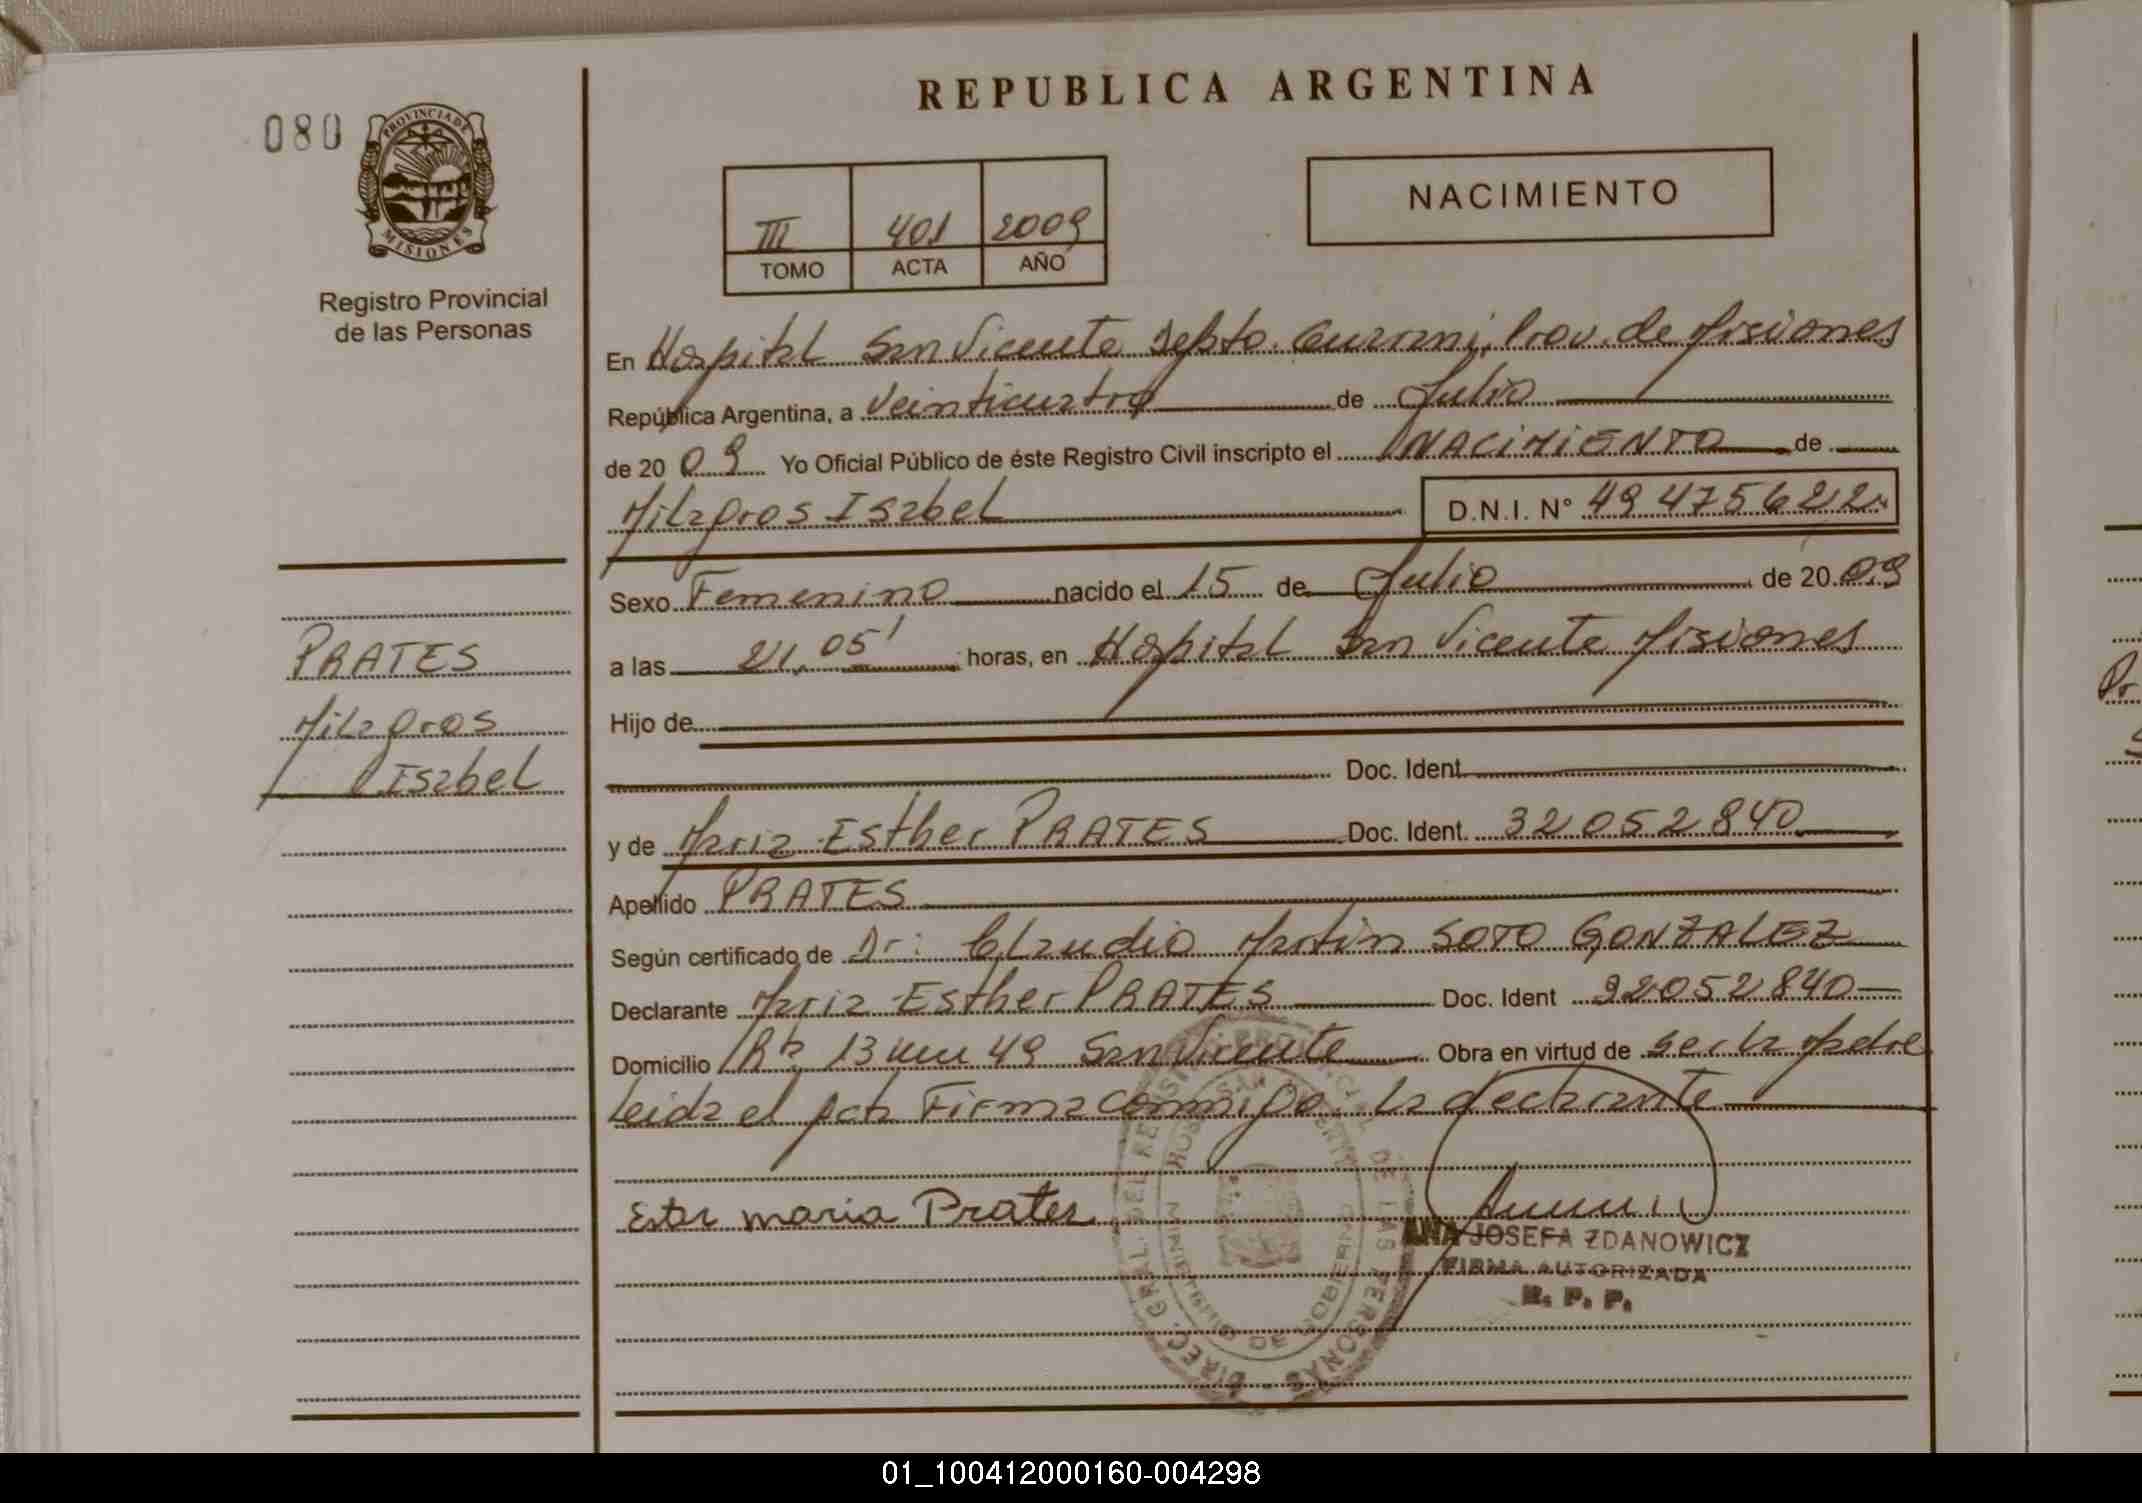 REPUBLICA ARGENTINA
080
PROVINCIA DE
MISIONES
Registro Provincial
de las Personas
III 401 2009
TOMO ACTA AÑO
NACIMIENTO
En Hospital San Vicente Depto. Guarani, Prov. de Misiones
República Argentina, a Veinticuatro de Julio
de 2009 Yo Oficial Público de éste Registro Civil inscripto el NACIMIENTO de
Milagros Isabel D.N.I. N° 49475622
Sexo Femenino nacido el 15 de Julio de 2009
a las 21,05' horas, en Hospital San Vicente Misiones
Hijo de
Doc. Ident.
y de Maria Esther PRATES Doc. Ident. 32052840
Apellido PRATES
Según certificado de Dr: Claudio Martin SOTO GONZALEZ
Declarante Maria Esther PRATES Doc. Ident 32052840
Domicilio Rta 13 km 49 San Vicente Obra en virtud de ser la Madre
Leida el acta Firma conmigo la declarante
PRATES
Milagros
Isabel
Ester maria Prates
ANA JOSEFA ZDANOWICZ
FIRMA AUTORIZADA
R. P. P.
DIREC. GRAL. DEL REGISTRO PROVINCIAL DE LAS PERSONAS
MINISTERIO DE GOBIERNO
01_100412000160-004298